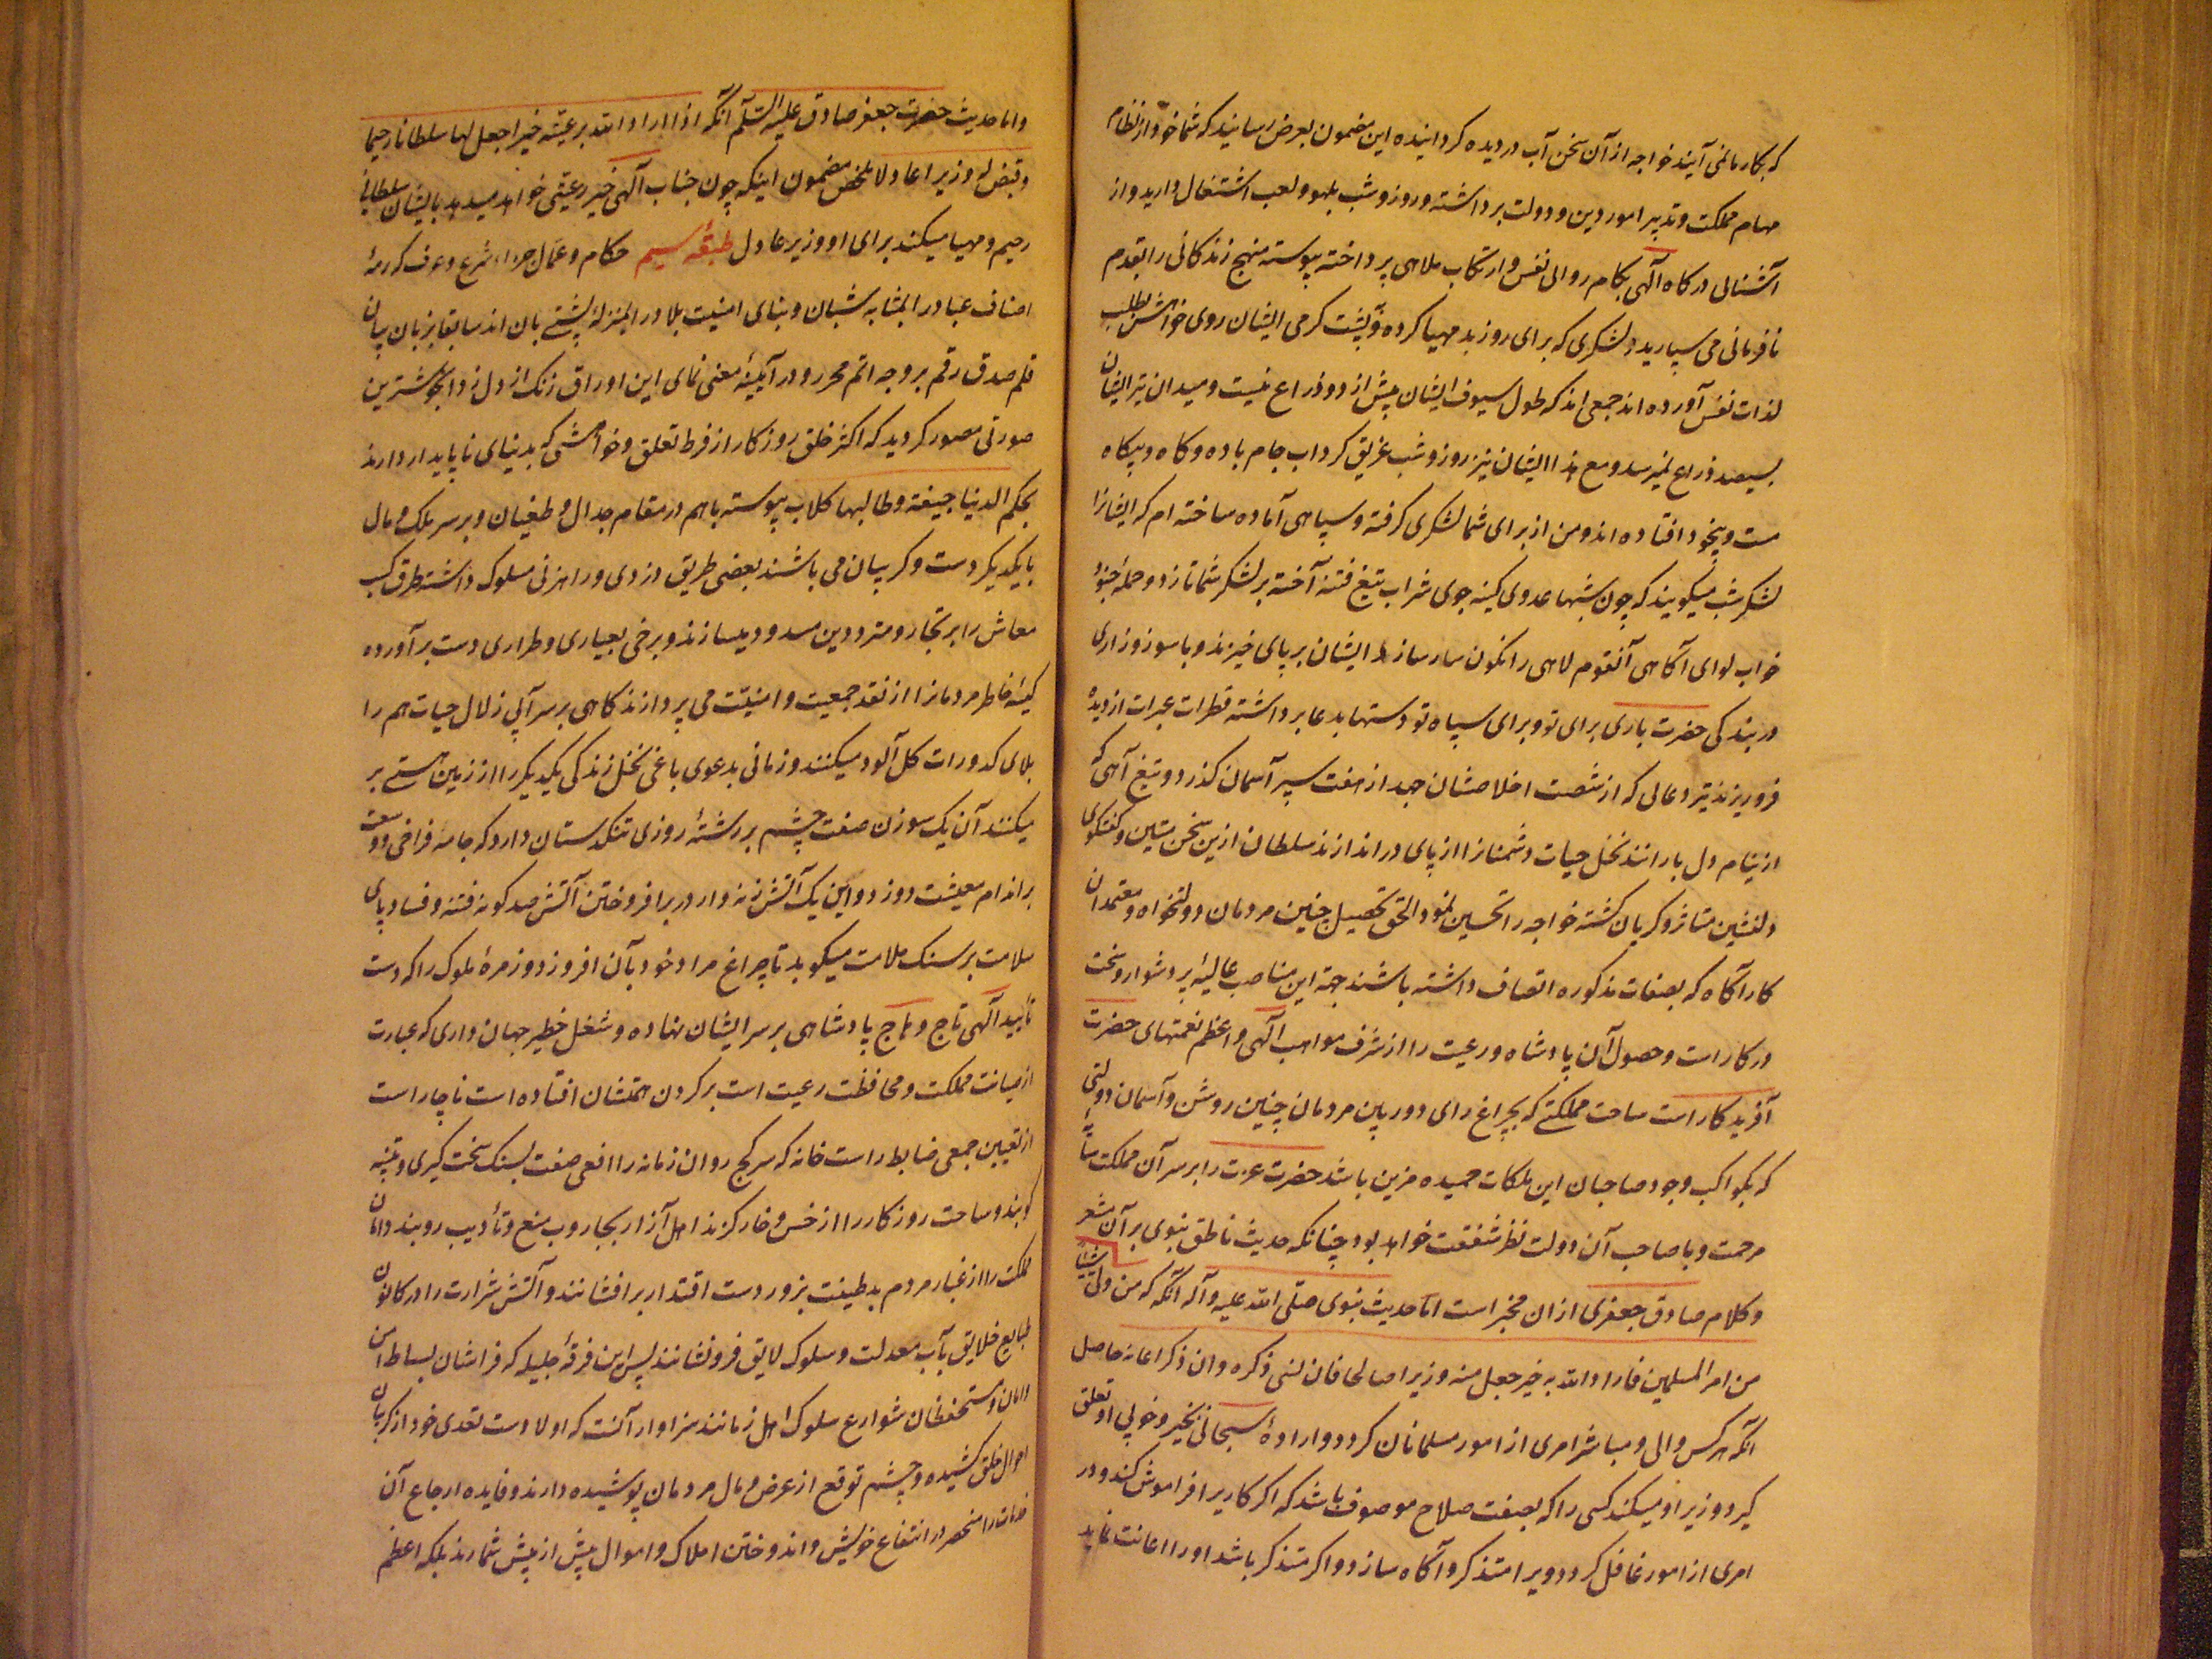 که بکار ما نمی آیند خواجه از آن سخن آب در دیده گردانیده این مضمون بعرض رسانید که شما خود از نظام
مهام مملکت و تدبیر امور دین و دولت برداشته و روز و شب بلهو و لعب اشتغال دارید و از
آشنائی درگاه آلهی بکام روائی نفس و ارتکاب ملاهی پرداخته پیوسته منهج زندگانی را بقدم
نافرمانی می سپارید و لشکری که برای روز بد مهیا کرده و پشت گرمی ایشان روی خواهش بطلب
لذات نفس آورده اند جمعی اند که طول سیوف ایشان بیش از دو ذراع نیست و میدان تیر ایشان
بسیصد ذراع نمیرسد و مع هذا ایشان نیز روز و شب غریق گرداب جام باده و گاه و بیگاه
مست و بیخود افتاده اند و من از برای شما لشکری گرفته و سپاهی آماده ساخته ام که ایشانرا
لشکر شب میگویند که چون شبها عدوی کینه جوی شراب تیغ فتنه آخته بر لشکر شما تازد و حمله جنود
خواب لوای آگاهی آنقوم لاهی را نگون سار سازد ایشان بر پای خیزند و با سوز و زاری
در بندگی حضرت باری برای تو و برای سپاه تو دستها بدعا برداشته قطرات عبرات از دیده
فرو ریزند تیر دعائی که از شصت اخلاصشان جهد از هفت سپر آسمان گذرد و تیغ آهی که
از نیام دل برانند نخل حیات دشمنانرا از پای دراندازند سلطان ازین سخن متین و گفتگوی
دلنشین متاثر و گریان گشته خواجه را تحسین نمود الحق تحصیل چنین مردمان دولتخواه و معتمدان
کارآگاه که بصفات مذکوره اتصاف داشته باشند جهة این مناصب عالیه پر دشوار و سخت
در کار است و حصول آن پادشاه و رعیت را از شرف مواهب آلهی و اعظم نعمتهای حضرت
آفریدگار است ساحت مملکتی که بچراغ رای دوربین مردمان چنین روشن و آسمان دولتی
که بکواکب وجود صاحبان این ملکات حمیده مزین باشد حضرت عزت را بر سر آن مملکت
مرحمت و با صاحب آن دولت نظر شفقت خواهد بود چنانکه حدیث ناطق نبوی بر آن مشعر
و کلام صادق جعفری از ان مخبر است اما حدیث نبوی صلی الله علیه و آله آنکه که من ولی شیئا
من امر المسلمین فاراد الله به خیر جعل منه وزیرا صالحا فان نسی ذکره و ان ذکر اعانه حاصل
آنکه هر کس والی و مباشر امری از امور مسلمانان گردد و ارادهٔ سبحانی بخیر و خوبی او تعلق
گیرد وزیر او میکند کسی را که بصفت صلاح موصوف باشد که اگر کار یرا فراموش کند و در
امری از امور غافل گردد ویرا متذکر و آگاه سازد و اگر متذکر باشد او را اعانت نماید
و اما حدیث حضرت جعفر صادق علیه السلام آنکه اذا اراد الله برعیته خیرا جعل لها سلطانا رحیما
و قیض له وزیرا عادلا ملخص مضمون اینکه چون جناب آلهی خیر رعیتی خواهد میدهد بایشان سلطانی
رحیم و مهیا میکند برای او وزیر عادل طبقهٔ سیم حکام و عمال شرع و عرف که رمهٔ
اصناف عباد را بمثابه شبان و بنای امنیت بلاد را بمنزلهٔ پشتی بان اند سابقا بزبان بیان
قلم صدق رقم بر وجه اتم محرر و در آیینهٔ معنی نمای این اوراق زنگ از دل زدا بخوشترین
صورتی مصور گردید که اکثر خلق روزگار از فرط تعلق و خواهشی که بدنیای ناپایدار دارند
بحکم الدنیا جیفة و طالبها کلاب پیوسته با هم در مقام جدال و طغیان و بر سر ملک و مال
با یکدیگر دست و گریبان می باشند بعضی طریق دزدی و راهزنی مسلوک داشته طرق کسب
معاش را بر تجار و مترددین مسدود میسازند و برخی بعیاری و طراری دست برآورده
کیسهٔ خاطر مردمانرا از نقد جمعیت و امنیت می پردازند گاهی بر سر آبی زلال حیات هم را
بلای کدورات گل آلود میکنند و زمانی بدعوی باغی نخل زندگی یکدیگر را از زمین هستی بر
میکنند آن یک سوزن صفت چشم بر رشتهٔ روزی تنگدستان دارد که جامهٔ فراخی و وسعت
بر اندام معیشت دوزد و این یک آتش زنه وار در برافروختن آتش صد گونه فتنه و فساد پای
سلامت بر سنک ملامت میکوبد تا چراغ مراد خود بآن افروزد و زمرهٔ ملوک را که دست
تأیید آلهی تاج و باج پادشاهی بر سر ایشان نهاده و شغل خطیر جهان داری که عبارت
از صیانت مملکت و محافظت رعیت است بر گردن همتشان افتاده است ناچار است
از تعیین جمعی ضابط راست خانه که سر کج روان زمانه را افعی صفت بسنک سخت گیری و تنبیه
کوبند و ساحت روزگار را از خس و خار گزند اهل آزار بجاروب منع و تأدیب روبند دامان
ملکت را از غبار مردم بد طینت بزور دست اقتدار برافشانند و آتش شرارت را در کانون
طبایع خلایق بآب معدلت و سلوک لایق فرو نشانند پس این فرقهٔ جلیله که فراشان بساط امن
و امان و مستحفظان شوارع سلوک اهل زمانند سزاوار آنست که اولا دست تعدی خود از گریبان
احوال خلق کشیده و چشم توقع از عرض و مال مردمان پوشیده دارند و فایده ارجاع آن
خدمات را منحصر در انتفاع خویش و اندوختن املاک و اموال بیش از بیش شمارند بلکه اعظم